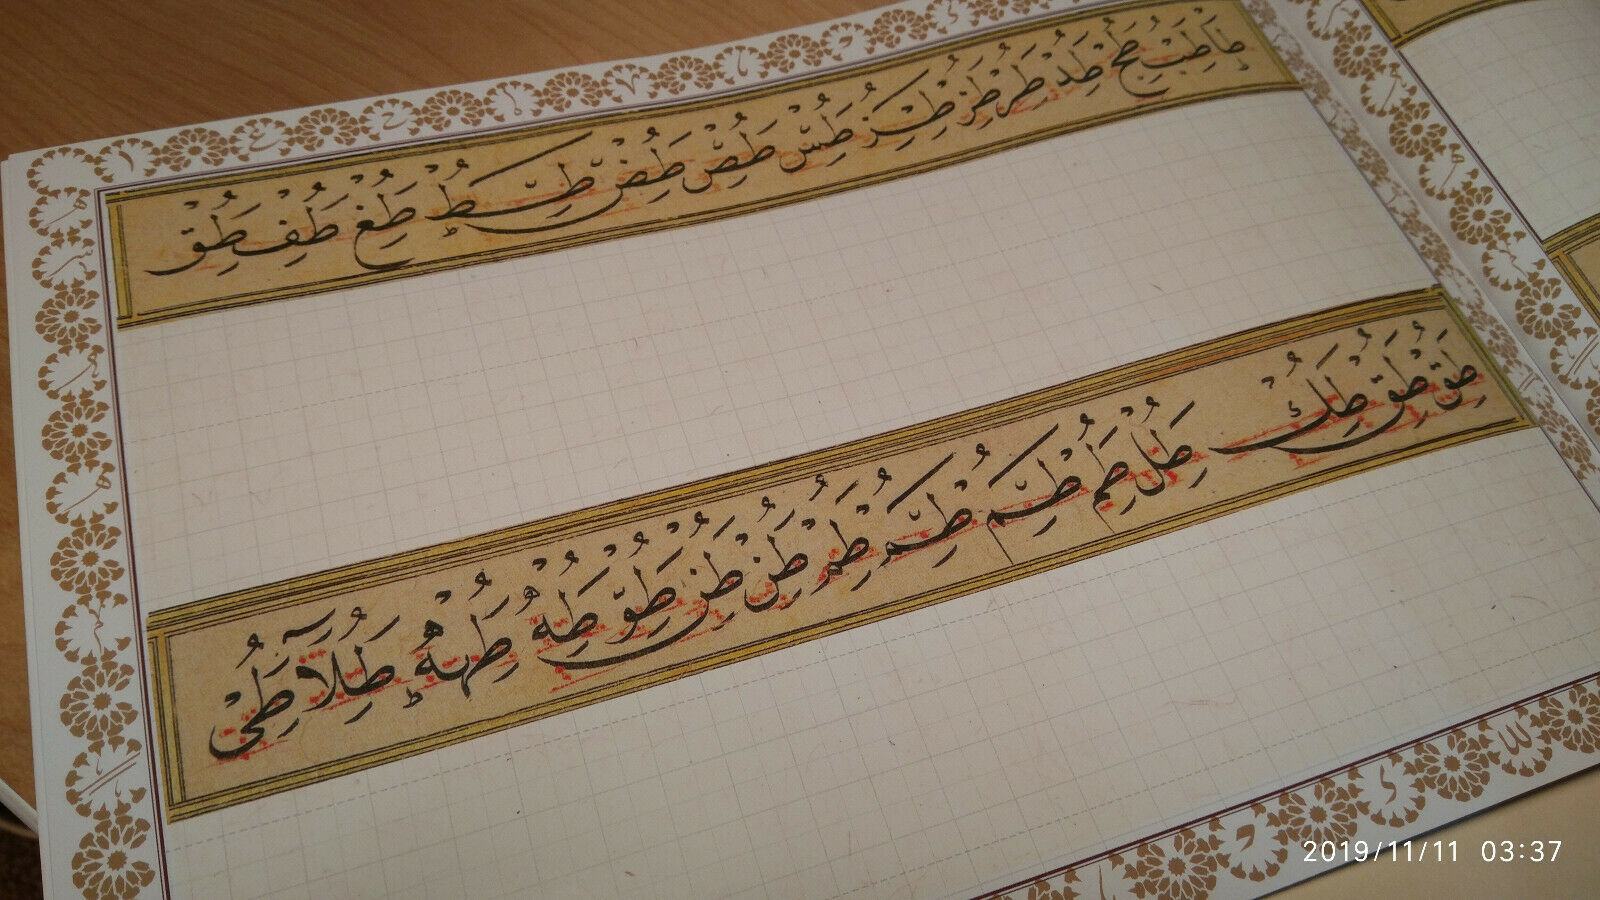 طا طب طج طد طر طر طير طس طص طص طط طع طف طق
طق طق طك طل طم طم طم طم طن طن طو طه طه طلا طى
2019/11/11 03:37